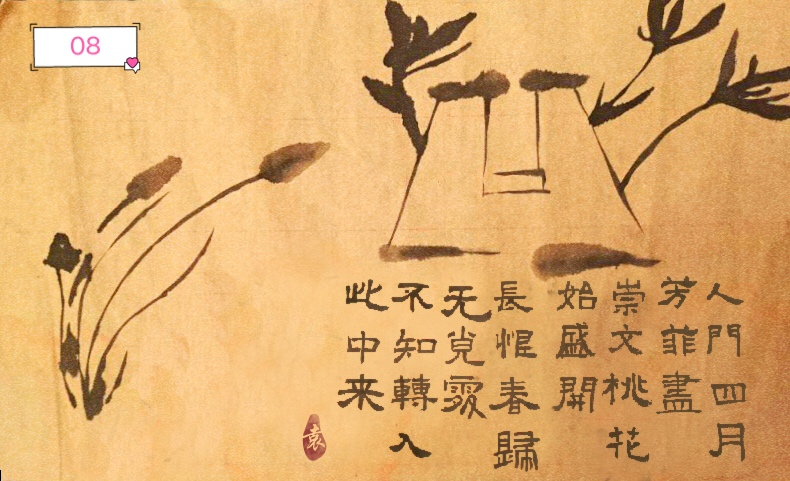 08
人門四月
芳菲盡
崇文桃花
始盛開
長恨春歸
无覓處
不知轉入
此中来
袁